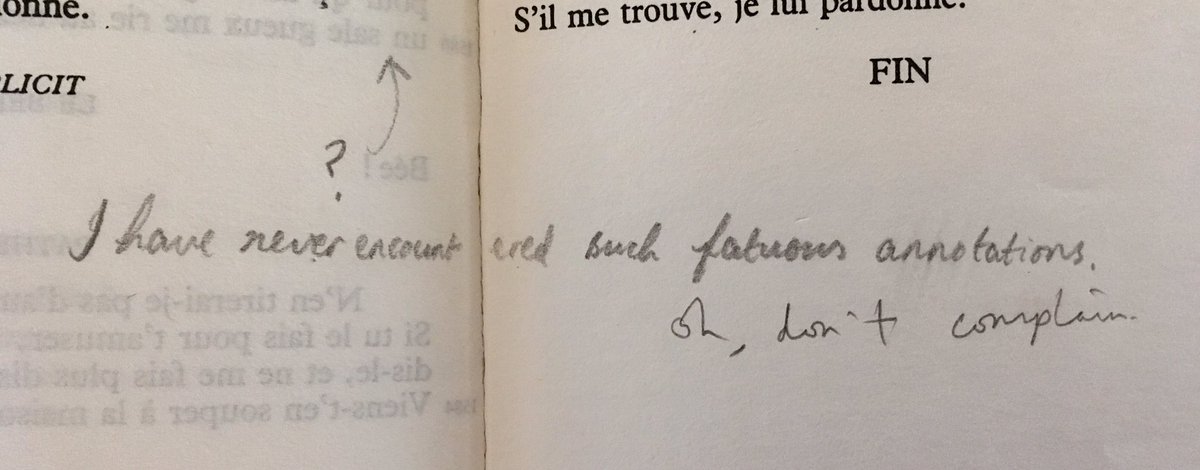 onne.
LICIT
S'il me trouve, je lui pardonne.
FIN
?
I have never encountered such fatuous annotations.
oh, don't complain.